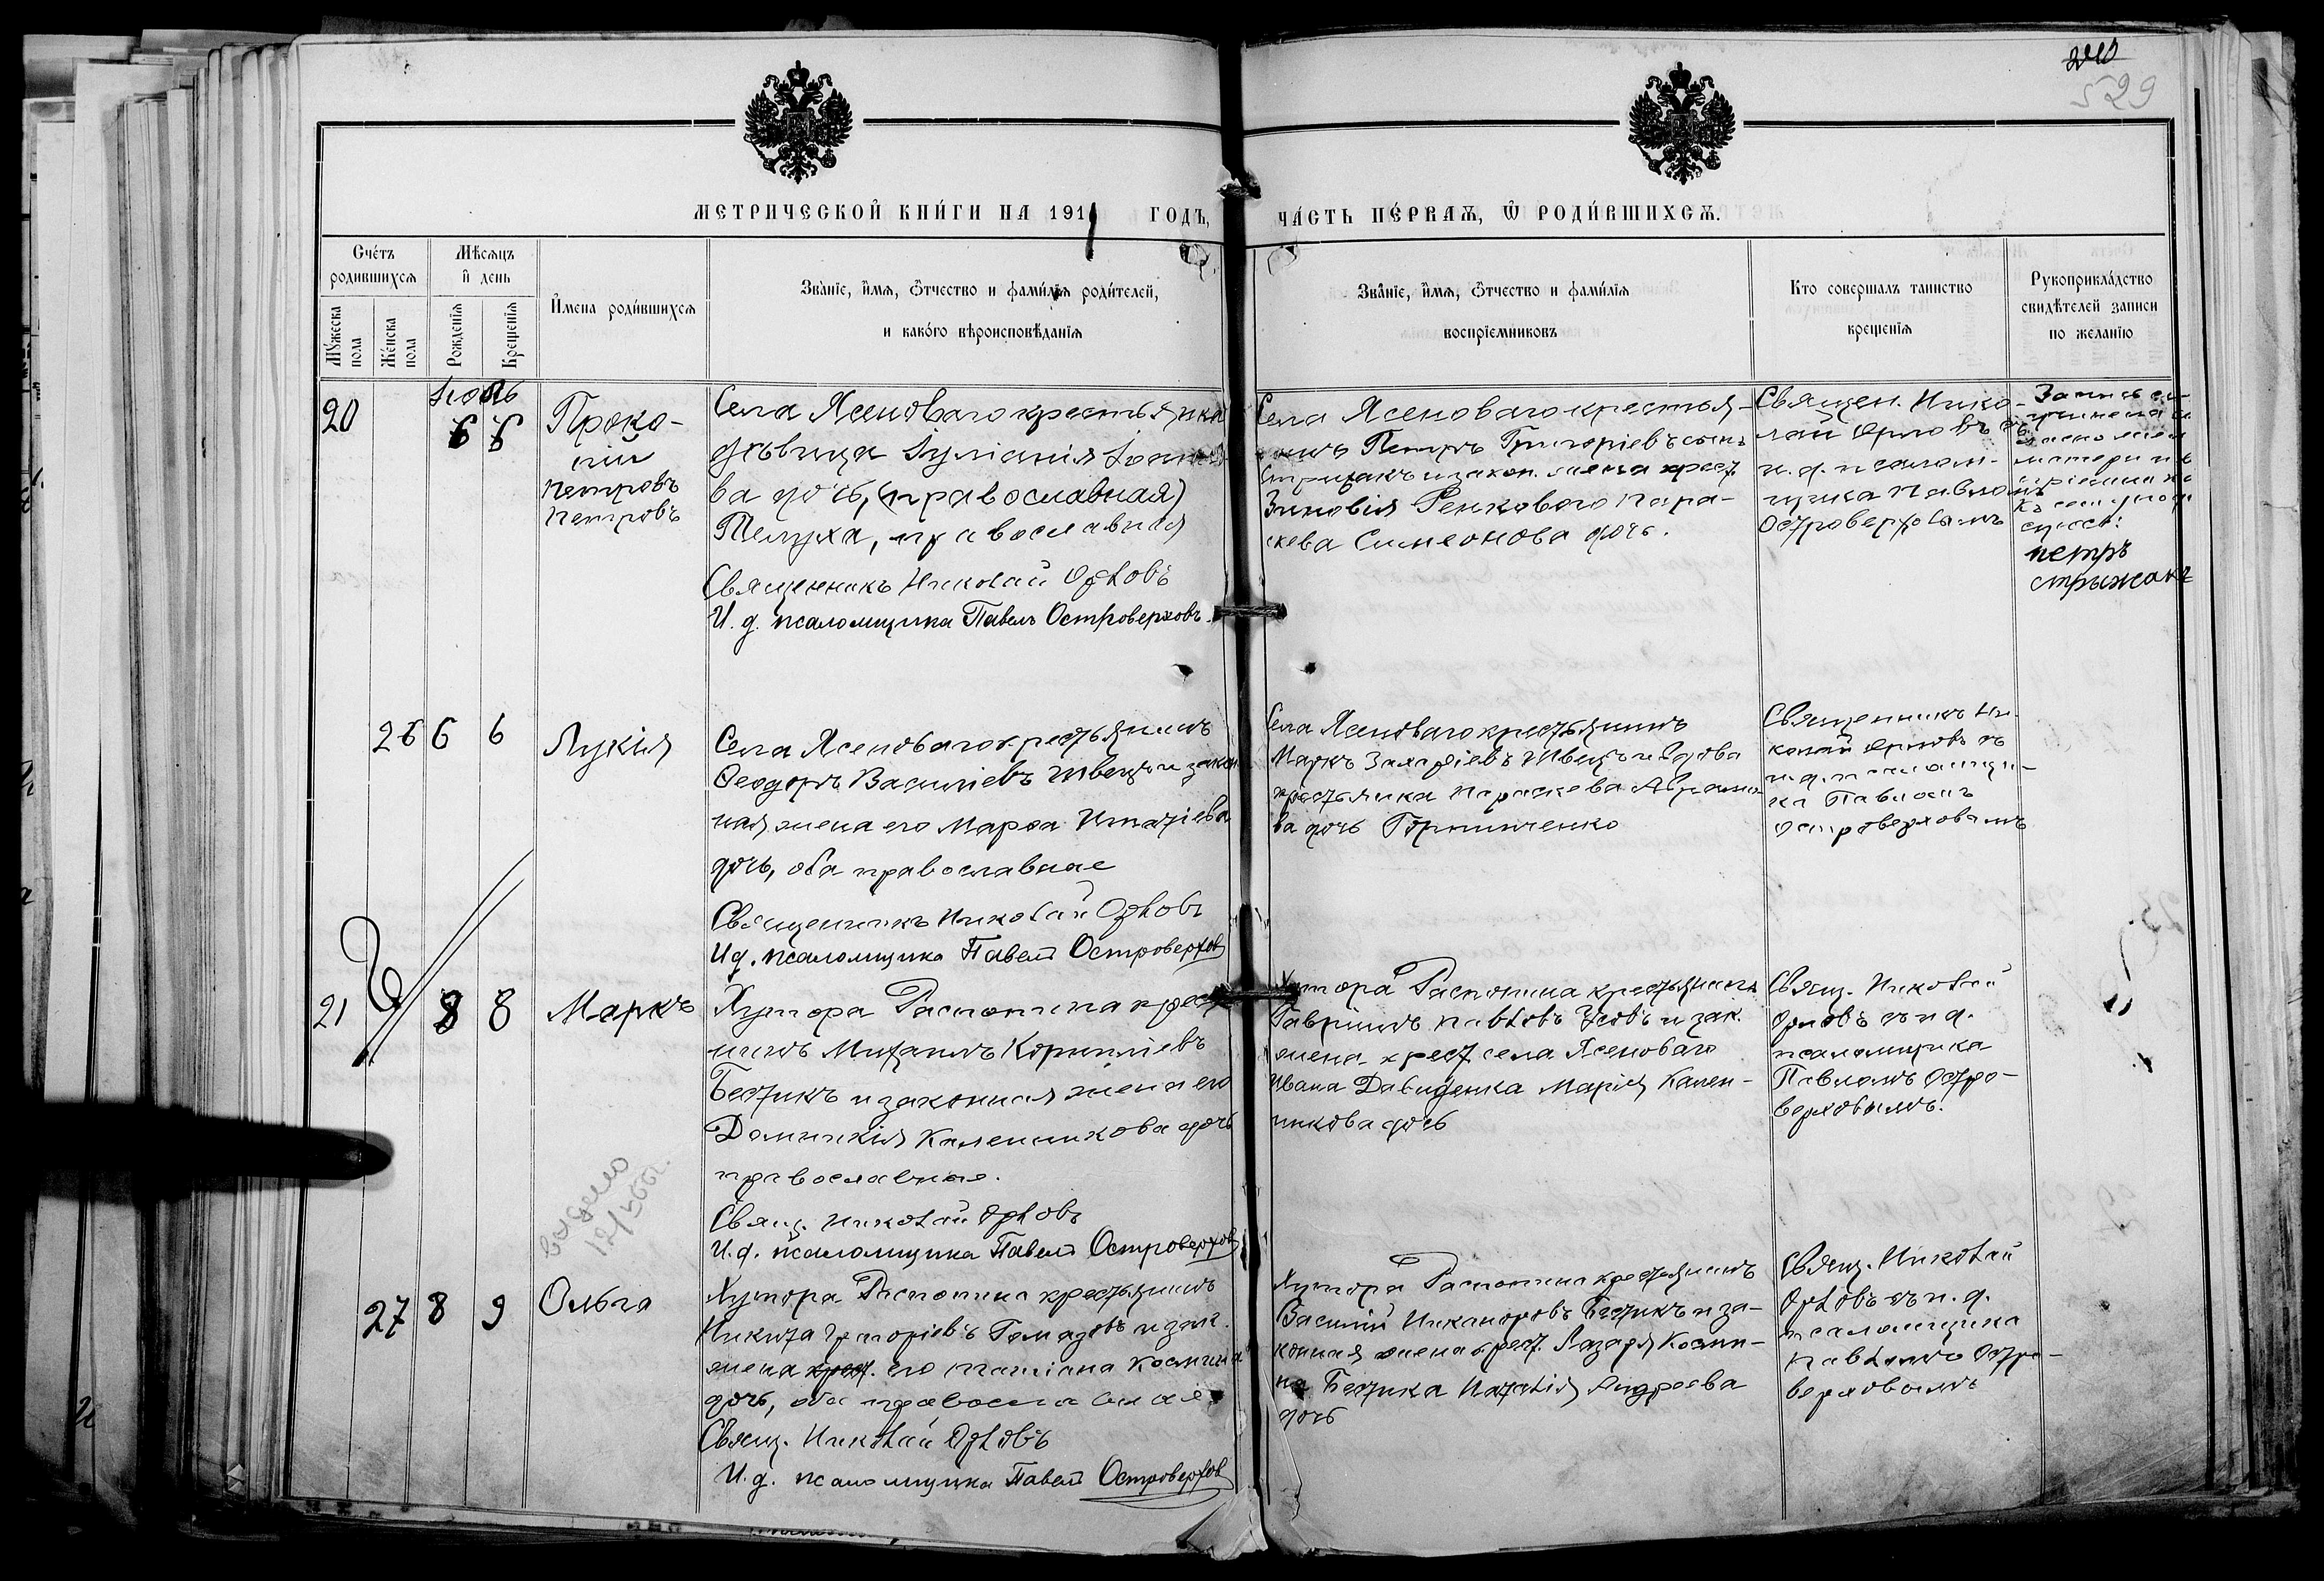 240
529
МЕТРИЧЕСКОЙ КНИ́ГИ НА 1911 ГОДЪ,
ЧА́СТЬ ПЕ́РВАѦ, Ѡ РОДИ́ВШИХСѦ.
Сче́тъ родившихсѧ
Мѣ́сѧцъ и день
Му́жеска пола
Же́нска пола
Рожденїѧ
Крещенїѧ
И́мена роди́вшихсѧ
Зва́нїе, и́мѧ, ѻ҆́тчество и фами́лїѧ роди́телей,
и како́го вѣроисповѣ́данїѧ
Зва́нїе, и́мѧ, ѻ҆́тчество и фами́лїѧ
воспрїе́мниковъ
Кто совершалъ таинство
крещенїѧ
Рукоприкла́дство
свидѣ́телей записи
по желанїю
20
Іюль
6 6
Проко-
пій
Петровъ
Петровъ
Села Ясеноваго крестьянка
дѣвица Іуліанія Іоанно
ва дочь, (православная)
православная
Священникъ Николай Орловъ
И. д. псаломщика Павелъ Островерховъ.
Села Ясеноваго крестья-
нинъ Петръ Григоріевъ сынъ
Стрижакъ и закон. жена крест.
Зиновія Пара-
скева Симеонова дочь.
Священ. Нико-
лай Орловъ съ
и. д. псалом-
щика Павломъ
Островерховымъ
Запись
матери
петръ
стрыжакъ
26 6 6
Лукія
Села Ясеноваго крестьянинъ
Ѳеодоръ Василіевъ Швецъ и закон
ная жена его Марѳа Игнатіева
дочь, оба православные
Священникъ Николай Орловъ
И д. псаломщика Павелъ Островерхов
Села Ясеноваго крестьянинъ
Маркъ Захаріевъ Швецъ и вдова
крестьянка Параскева Аврамо
ва дочь
Священникъ Ни-
колай Орловъ съ
и. д. псаломщи-
ка Павломъ
Островерховымъ
21 8 8
Маркъ
Хутора Распопина крестья
нинъ Михаилъ Корниліевъ
Бестикъ и законная жена его
Домникія Каленикова дочь
православные.
Свящ. Николай Орловъ
И. д. псаломщика Павелъ Островерхов
Хутора Распопина крестьянинъ
Гавріилъ Павловъ Усовъ и зак.
жена крест села Ясеноваго
Ивана Давиденка Марія Кален-
никова дочь
Свящ. Николай
Орловъ съ и д.
псаломщика
Павломъ Остро-
верховымъ.
выдано
27 8 9
Ольга
Хутора Распопина крестьянинъ
Никита Григоріевъ и зак.
жена крест. его Татіана Космина
дочь, оба православные
Свящ. Николай Орловъ
И. д. псаломщика Павелъ Островерхов
Хутора Распопина крестьянинъ
Василій Никаноровъ Бестикъ и за-
конная жена крест. Лазаря Косми-
на Бестика Наталія Андреева
дочь
Свящ. Николай
Орловъ съ и. д.
псаломщика
Павломъ Остро-
верховымъ